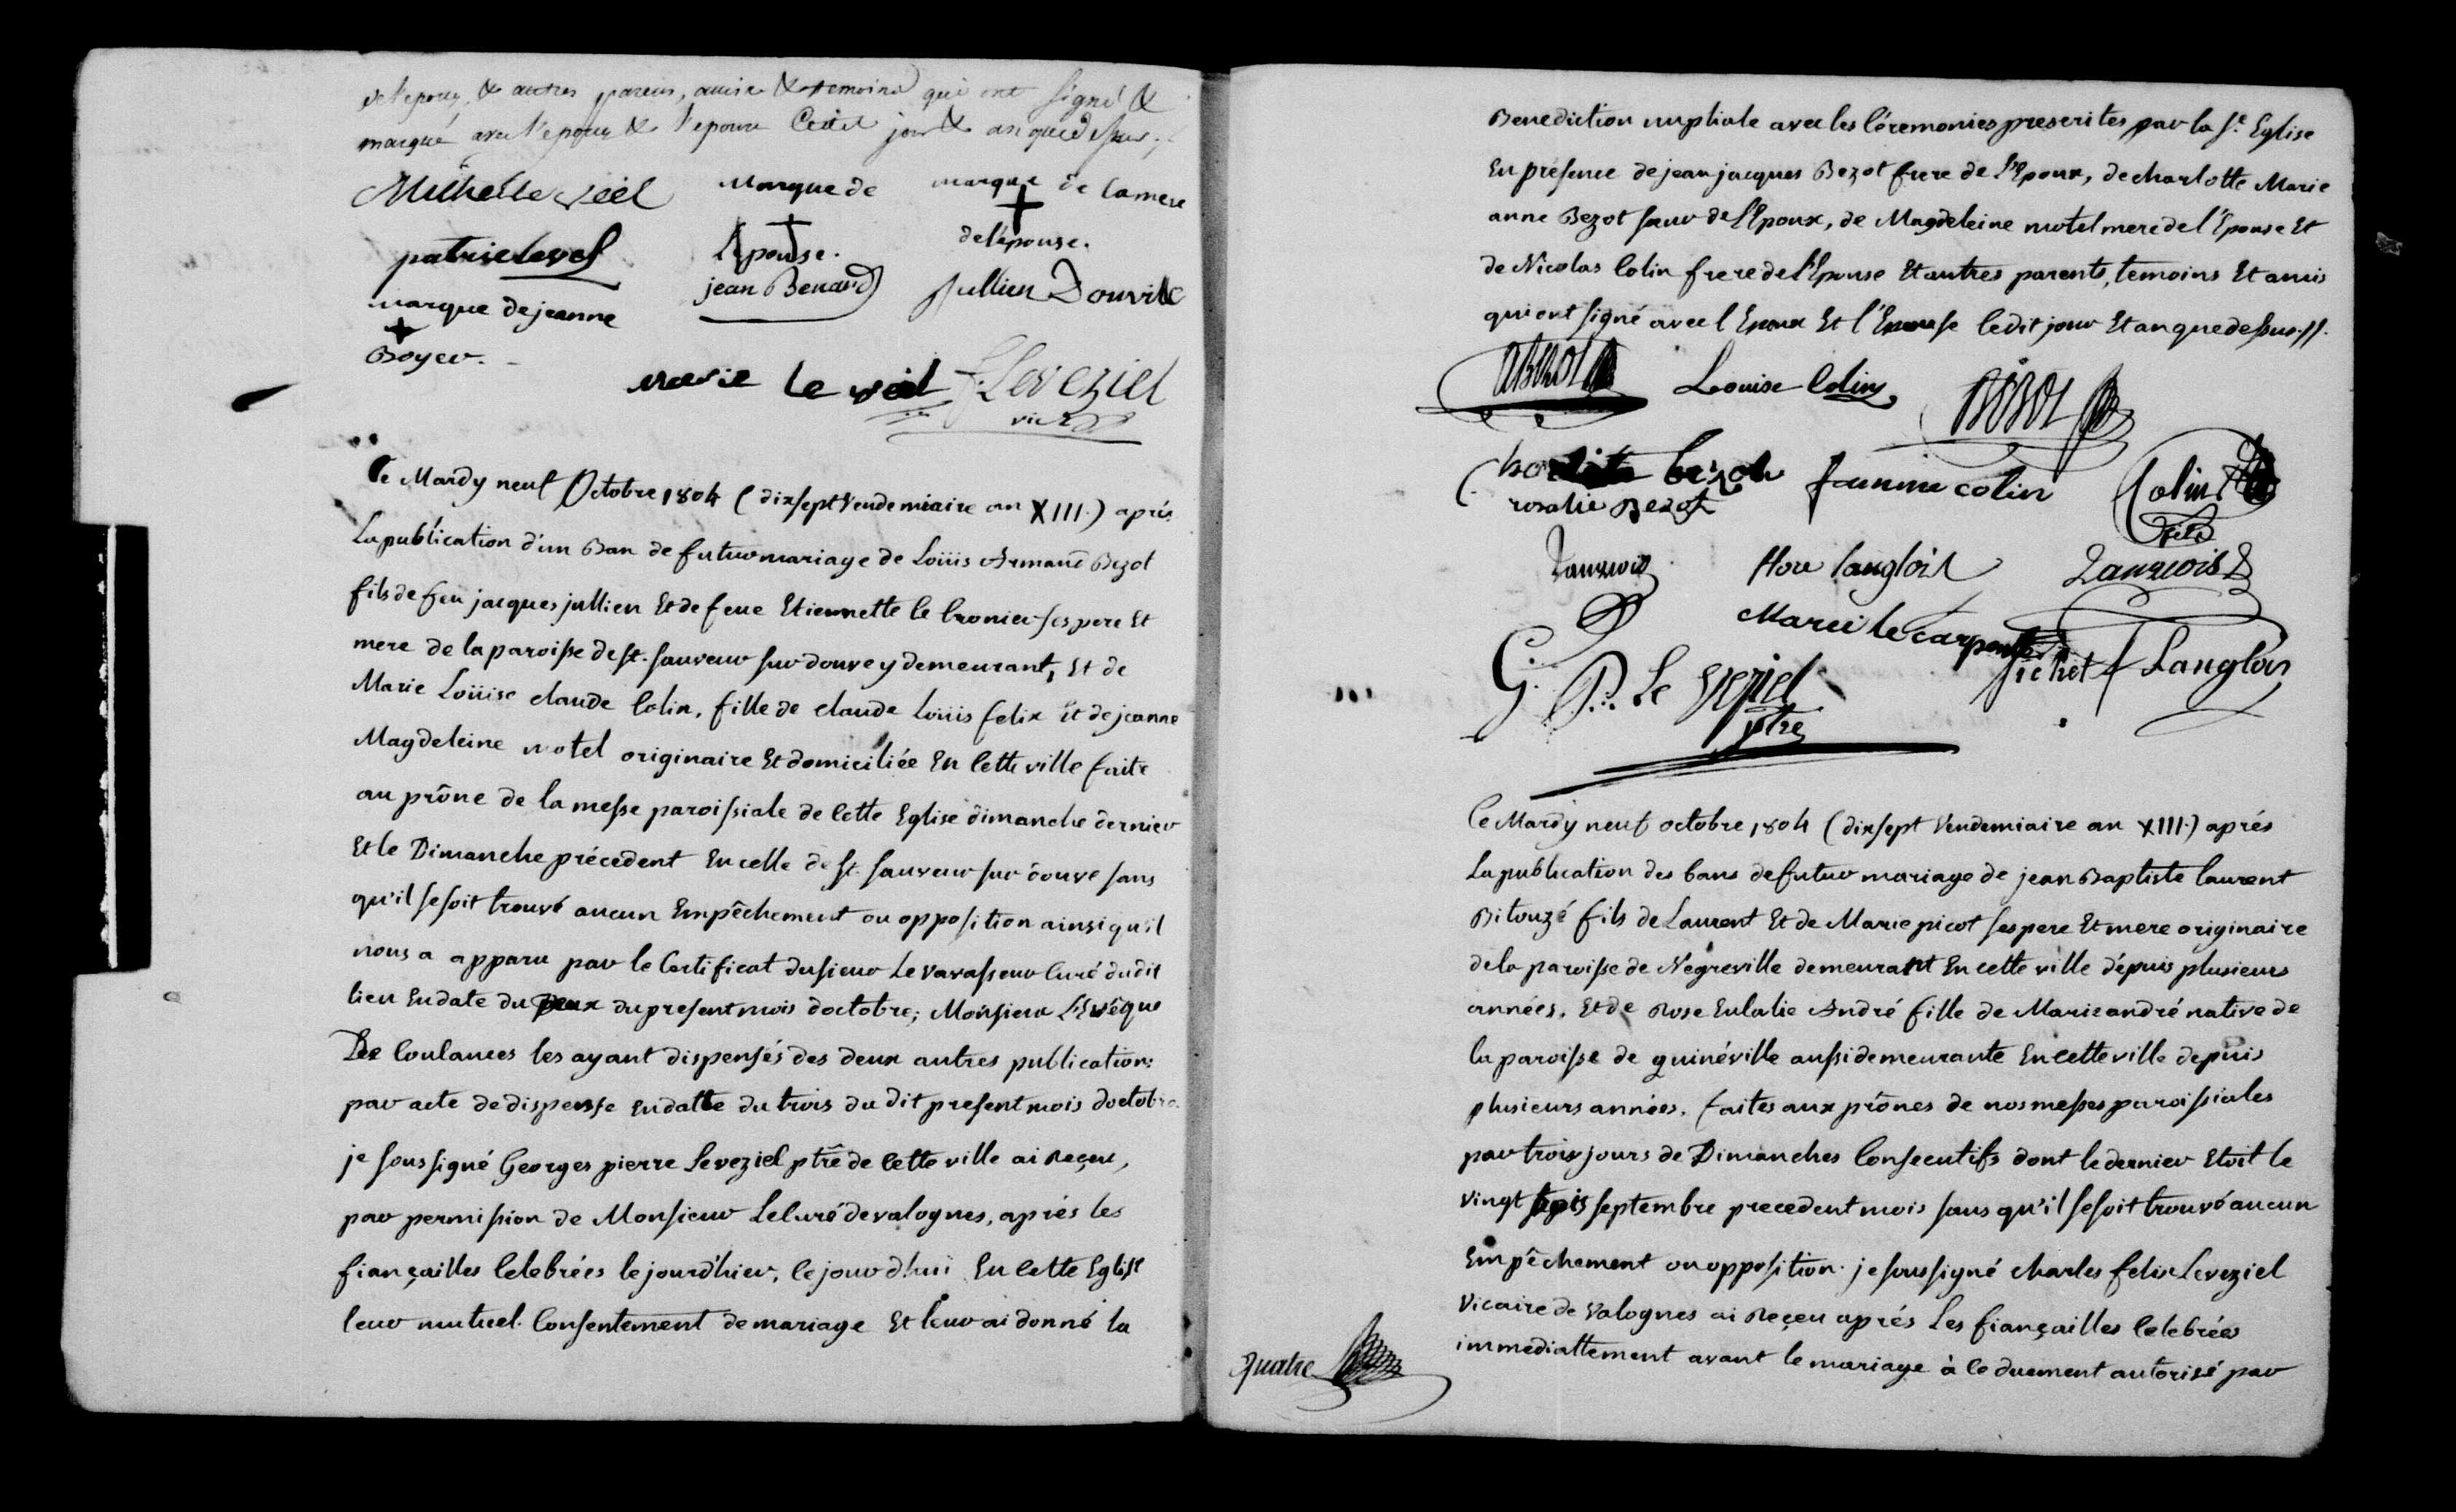 de l'epoux, & autres parens, amis & temoins qui ont signé &
marqué avec l'epoux & l'epouse Cedit jour & an que dessus.
Michelle veel marque de marque de la mere
l'Epouse. de l'épouse.
patrice levesl jean Benard Jullien Douville
marque de jeanne
Boyer.
marie le veel f. Leveziel
vic
Ce Mardy neuf Octobre 1804 (dixsept Vendemiaire an XIII.) aprés
La publication d'un Ban de futur mariage de Loüis Armand Bezot
fils de feu jacques jullien Et de feue Etiennette le Cronier ses pere Et
mere de la paroisse de st. sauveur sur douve y demeurant, Et de
Marie Loüise claude Colin, fille de claude Loüis felix Et de jeanne
Magdeleine motel originaire Et domiciliée En Cette ville faite
au prône de la messe paroissiale de Cette Eglise dimanche dernier
Et le Dimanche précedent En celle de st. sauveur sur douve sans
qu'il se soit trouvé aucun Empêchement ou opposition ainsi qu'il
nous a apparu par le Certificat du sieur Le vavasseur Curé dudit
lieu En date du Deux du present mois d'octobre; Monsieur L'Evêque
De Coutances les ayant dispensés des deux autres publications
par acte de dispense En datte du trois du dit present mois d'octobre
je sous signé Georges pierre Leveziel ptre de Cette ville ai Reçeu,
par permission de Monsieur Le Curé de valognes, aprés les
fiançailles Celebrées le jour d'hier, Ce jour d'hui En Cette Eglise
leur mutuel Consentement de mariage Et leur ai donné la
Benediction nuptiale avec les Céremonies prescrites par la Ste. Eglise
En présence de jean jacques Bezot frere de l'Epoux, de charlotte Marie
anne Bezot sœur de l'Epoux, de Magdeleine motel mere de l'Epouse Et
de Nicolas Colin frere de l'Epouse Et autres parents, temoins Et amis
qui ont signé avec l'Epoux Et l'Epouse ledit jour Et an que dessus.
aBezot Louise Colin Bezot
bezot fannie colin Colin
rosalie Bezot fils
Langlois flore langlois Langlois
Marie le carpentier
G. P. Le Veziel pichot f Langlois
ptre
Ce Mardy neuf octobre 1804 (dixsept Vendemiaire an XIII.) aprés
La publication des bans de futur mariage de jean Baptiste laurent
Bitouzé fils de Laurent Et de Marie picot ses pere Et mere originaire
de la paroisse de Negreville demeurant En cette ville dépuis plusieurs
années, Et de Rose Eulalie André fille de Marie andré native de
la paroisse de quinéville aussi demeurante En cette ville depuis
plusieurs années, faites aux prônes de nos messes paroissiales
par trois jours de Dimanches Consecutifs dont le dernier Etoit le
vingt septembre precedent mois sans qu'il se soit trouvé aucun
Empêchement ou opposition. je sous signé charles felix Leveziel
Vicaire de Valognes ai Reçeu aprés Les fiançailles Celebrées
immediattement avant le mariage à ce duement autorisé par
Quatre